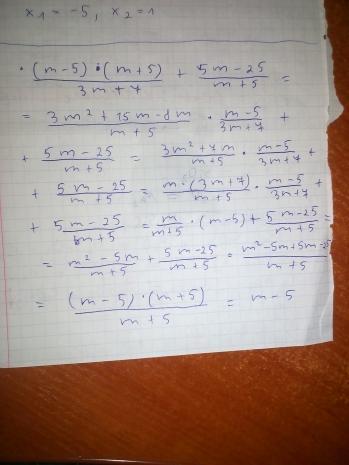 x₁ = -5, x₂ = 1
· (m-5)·(m+5)/3m+7 + 5m-25/m+5 =
= 3m²+15m-8m/m+5 · m-5/3m+7 +
+ 5m-25/m+5 = 3m²+7m/m+5 · m-5/3m+7 +
+ 5m-25/m+5 = m·(3m+7)/m+5 · m-5/3m+7 +
+ 5m-25/m+5 = m/m+5 · (m-5) + 5m-25/m+5 =
= m²-5m/m+5 + 5m-25/m+5 = m²-5m+5m-25/m+5
= (m-5)·(m+5)/m+5 = m-5